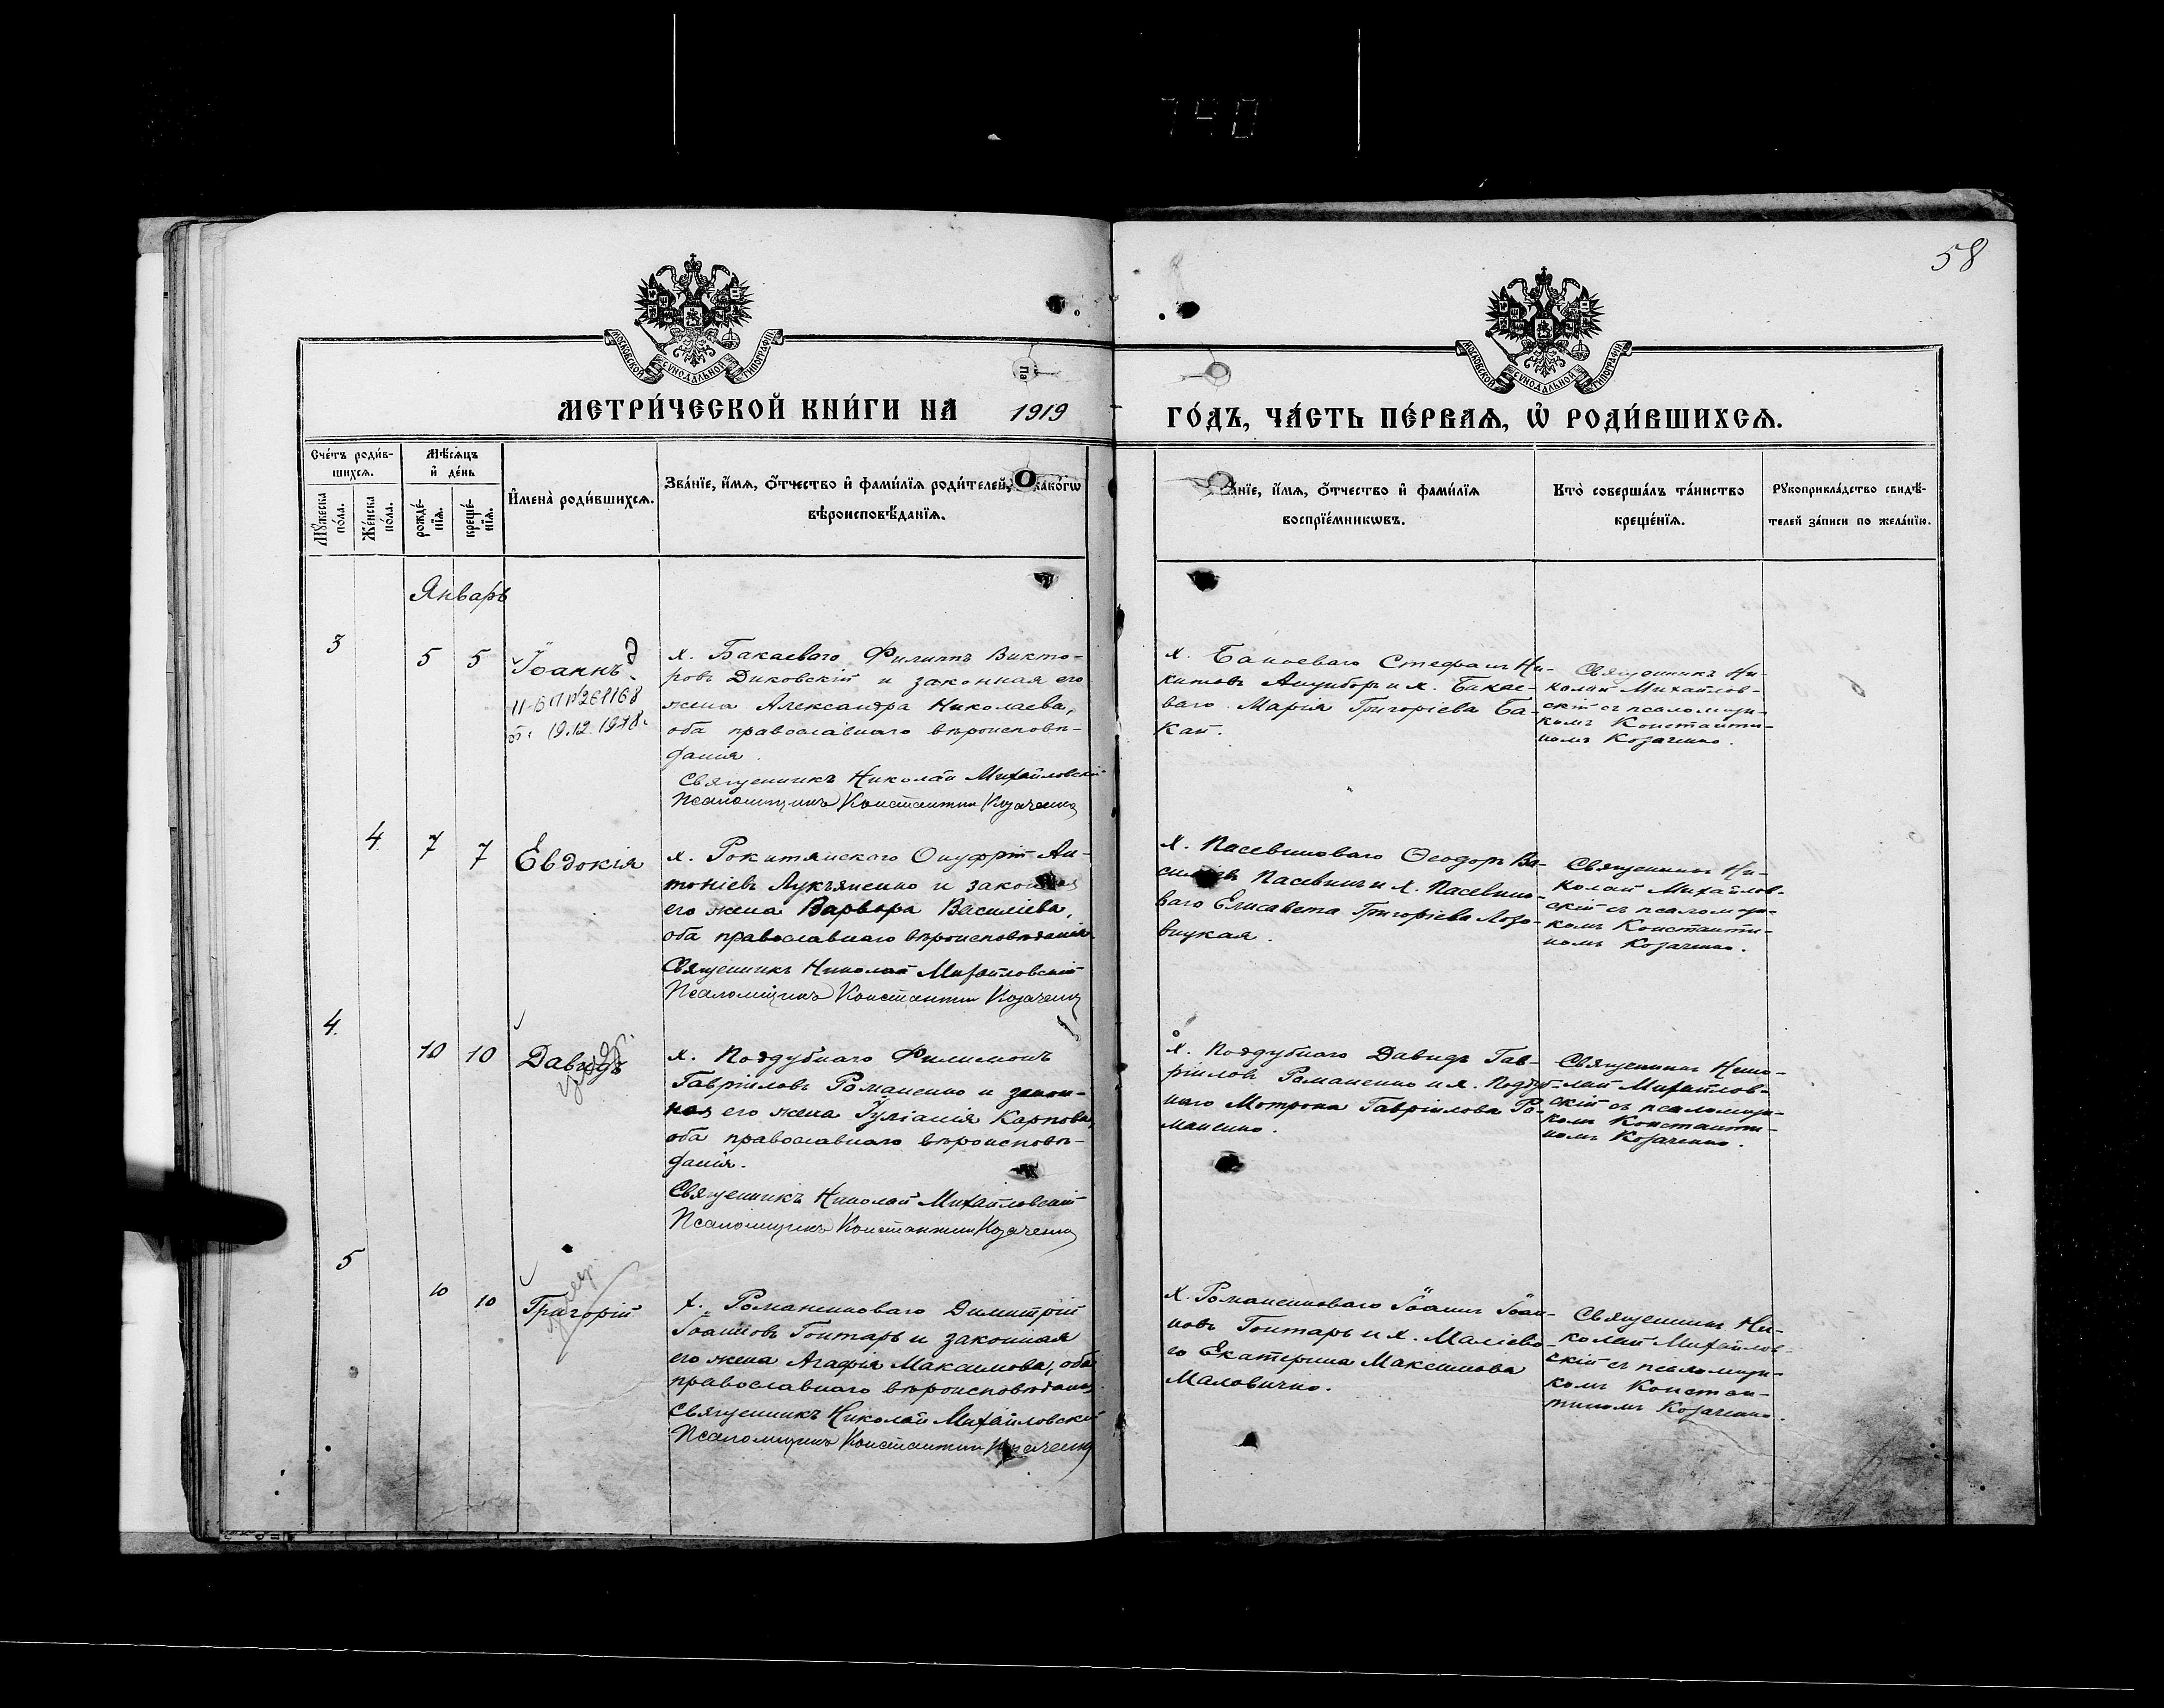 740
58
МОСКОВСКОЙ СѴНОДАЛЬНОЙ ТИПОГРАФІИ
МОСКОВСКОЙ СѴНОДАЛЬНОЙ ТИПОГРАФІИ
МЕТРИ́ЧЕСКОЙ КНИ́ГИ НА 1919
ГО́ДЪ, ЧА́СТЬ ПЕ́РВАѦ, Ѡ҆ РОДИ́ВШИХСѦ.
Сче́тъ роди́в-
шихсѧ.
Мѣ́сѧцъ
и҆ де́нь
Мꙋ́жеска
по́ла.
Же́нска
по́ла.
рожде́-
нїѧ.
креще́-
нїѧ.
И҆мена̀ роди́вшихсѧ.
Зва́нїе, и҆́мѧ, ѻ҆́тчество и҆ фами́лїѧ роди́телей, какогѡ
вѣроисповѣ́данїѧ.
а́нїе, и҆́мѧ, ѻ҆́тчество и҆ фами́лїѧ
воспрїе́мникѡвъ.
Кто̀ соверша́лъ та́инство
креще́нїѧ.
Рꙋкоприкла́дство свидѣ́-
телей за́писи по жела́нїю.
Январь
3
5 5
Іоаннъ
19.12.1978г
х. Бакаеваго Филиппъ Викто-
ровъ Диковскій и законная его
жена Александра Николаева,
оба православнаго вѣроисповѣ-
данія.
Священникъ Николай Михайловскій
Псаломщикъ Константин Козаченко
х. Бакаеваго Стефанъ Ни-
китовъ и х. Бакае-
ваго Марія Григоріева Ба-
кай.
Священникъ Ни-
колай Михайлов-
скій съ псаломщи-
комъ Константи-
номъ Козаченко.
4
7 7
Евдокія
х. Рокитянскаго Онуфрій Ан-
тоніевъ Лукьяненко и законная
его жена Варвара Василіева,
оба православнаго вѣроисповѣданія.
Священникъ Николай Михайловскій
Псаломщикъ Константин Козаченко
х. Пасевиноваго Ѳеодоръ Ва-
силіевъ Пасевинъ и х. Пасевино-
ваго Елисавета Григоріева Лозо-
вицкая.
Священникъ Ни-
колай Михайлов-
скій съ псаломщи-
комъ Константи-
номъ Козаченко.
4.
10 10
Давидъ
х. Поддубнаго Филимонъ
Гавріиловъ Романенко и закон-
ная его жена Іуліанія Карпова,
оба православнаго вѣроисповѣ-
данія.
Священникъ Николай Михайловскій
Псаломщикъ Константин Козаченко
х. Поддубнаго Давидъ Гав-
ріиловъ Романенко и х. Поддуб-
наго Мотрона Гавріилова Ро-
маненко.
Священникъ Нико-
лай Михайлов-
скій съ псаломщи-
комъ Константи-
номъ Козаченко.
5
10 10
Григорій
х. Романенковаго Димитрій
Іоанновъ Гонтарь и законная
его жена Агафія Максимова, оба
православнаго вѣроисповѣданія.
Священникъ Николай Михайловскій
Псаломщикъ Константин Козаченко
х. Романенковаго Іоаннъ Іоан-
новъ Гонтарь и х. Маліева-
го Екатерина Максимова
Маловичко.
Священникъ Ни-
колай Михайлов-
скій съ псаломщи-
комъ Констан-
тиномъ Козаченко.